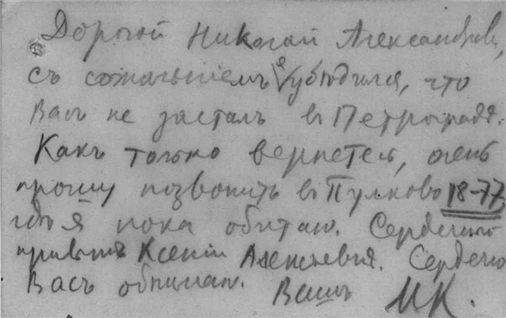 Дорогой Николай Александрович,
съ сожалѣніемъ я убѣдился, что
Васъ не засталъ въ Петроградѣ.
Какъ только вернетесь, очень
прошу позвонить въ Пулково 18-77,
гдѣ я пока обитаю. Сердечный
привѣтъ Ксеніи Алексѣевнѣ. Сердечно
Васъ обнимаю. Вашъ МК.